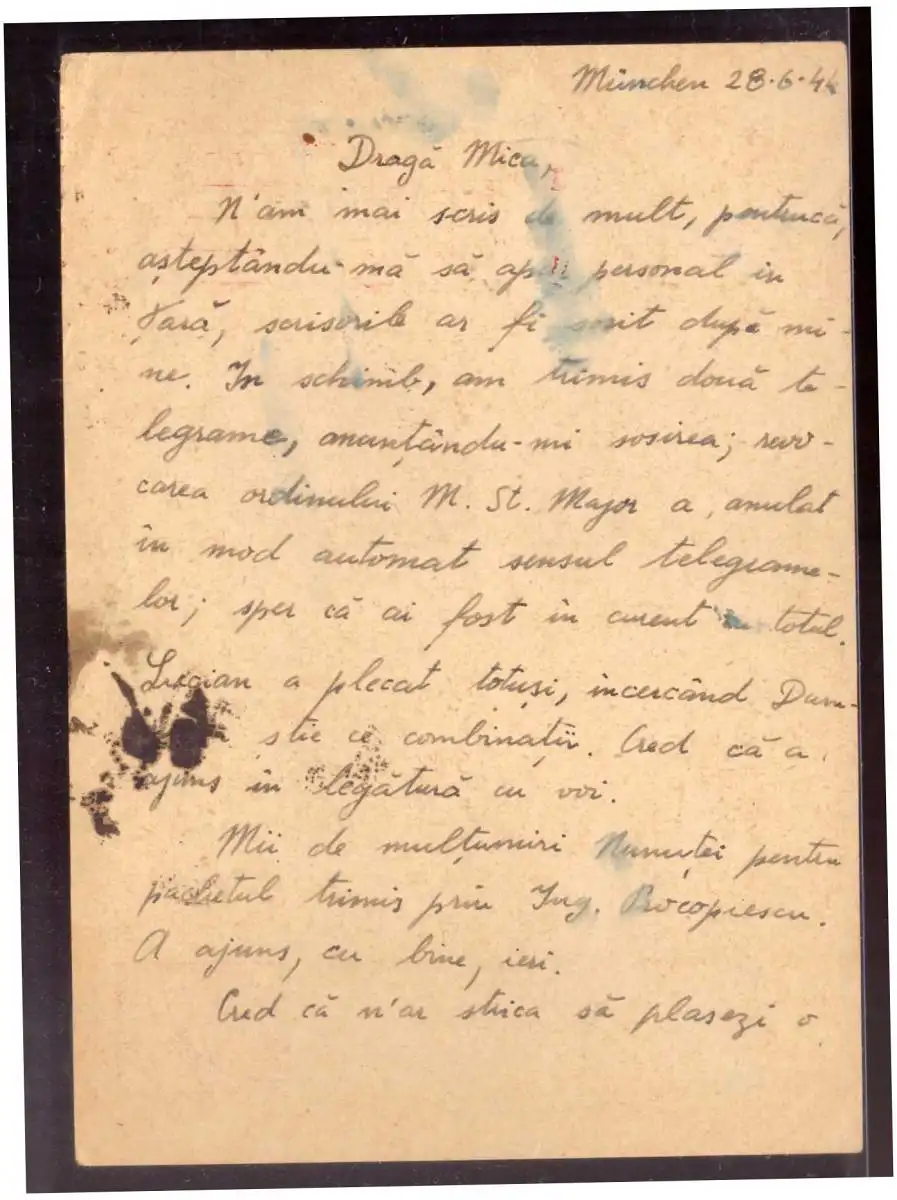 München 28.6.44
Dragă Mica,
N'am mai scris de mult, pentrucă,
așteptându-mă să apar personal in
Țară, scrisorile ar fi sosit după mi-
ne. In schimb, am trimis două te-
legrame, anunțându-mi sosirea; revo-
carea ordinului M. St. Major a anulat
în mod automat sensul telegrame-
lor; sper că ai fost în curent cu totul.
Lucian a plecat totuși, incercând Dum-
știe ce combinații. Cred că a
ajuns în legătură cu voi.
Mii de mulțumiri Nunuței pentru
pachetul trimis prin Ing. Procopiescu.
A ajuns, cu bine, ieri.
Cred că n'ar strica să plasezi o